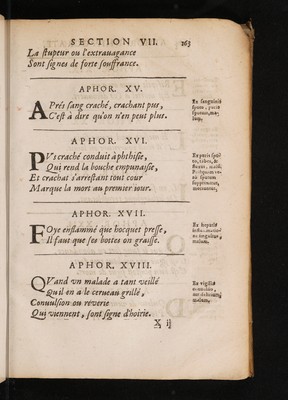 SECTION VII. 163
La stupeur ou l'extrauagance
Sont signes de forte souffrance.
APHOR. XV.
APrés sang craché, crachant pus,
C'est à dire qu'on n'en peut plus.
Ex sanguinis
sputo, puris
sputum, malum.
APHOR. XVI.
PVs craché conduit à phthisie,
Qui rend la bouche empunaisie,
Et crachat s'arrestant tout cour
Marque la mort au premier iour.
Ex puris sputo,
tabes, &
sputum
supprimitur,
moriuntur.
APHOR. XVII.
FOye enflammé que hocquet presse,
Il faut que ses bottes on graisse.
Ex hepatis
singultus,
malum.
APHOR. XVIII.
QVand vn malade a tant veillé
Qu'il en a le cerueau grillé,
Conuulsion ou reverie
Qui viennent, sont signe d'hoirie.
Ex vigilia
conuulsio,
aut delirium,
malum.
X ij